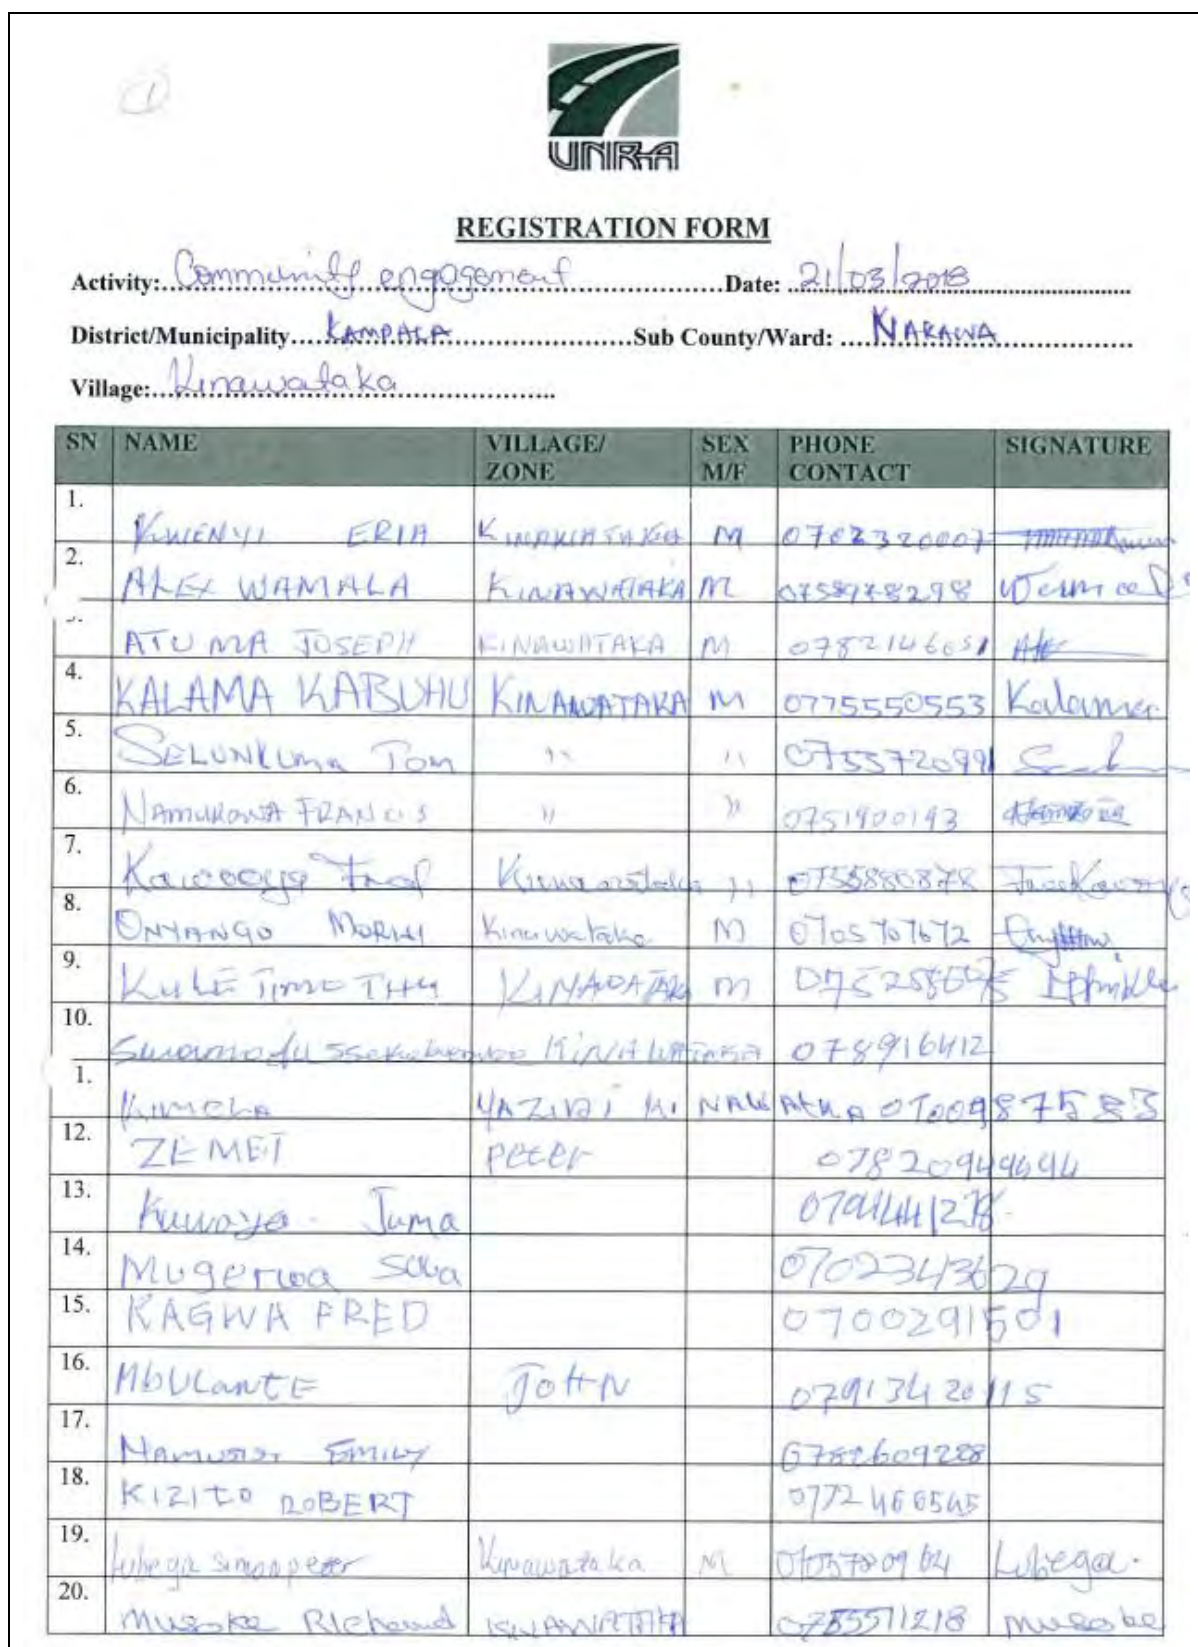 1
UNRA
REGISTRATION FORM
Activity: Community engagement Date: 21/03/2018
District/Municipality KAMPALA Sub County/Ward: NAKAWA
Village: Kinawataka
SN NAME VILLAGE/ ZONE SEX M/F PHONE CONTACT SIGNATURE
1. KWENYI ERIA KINAWATAKA M 0762320007
2. ALEX WAMALA KINAWATAKA M
ATUMA JOSEPH KINAWATAKA M 0782146051
4. KALAMA KABUHU KINAWATAKA M 0775550553 Kalama
5. SELUNKUMA TOM ,, ,,
6. NAMUKOWA FRANCIS ,, ,, 0751900193
7. Kinawataka ,, 0755880878
8. ONYANGO Kinawataka M 0705707672
9. KULE TIMOTHY KINAWATAKA M
10. KINAWATAKA 078916412
1. YAZIDI KINAWATKA 0700987583
12. ZEMEI Peter
13. Juma
14. Mugerwa 0702343629
15. KAGWA FRED 0700291501
16. JOHN 07913420115
17. EMILY 0782609228
18. KIZITO ROBERT 0772466545
19. Lubega simon peter Kinawataka M Lubega.
20. Musoke Richard 0755511218 Musoke